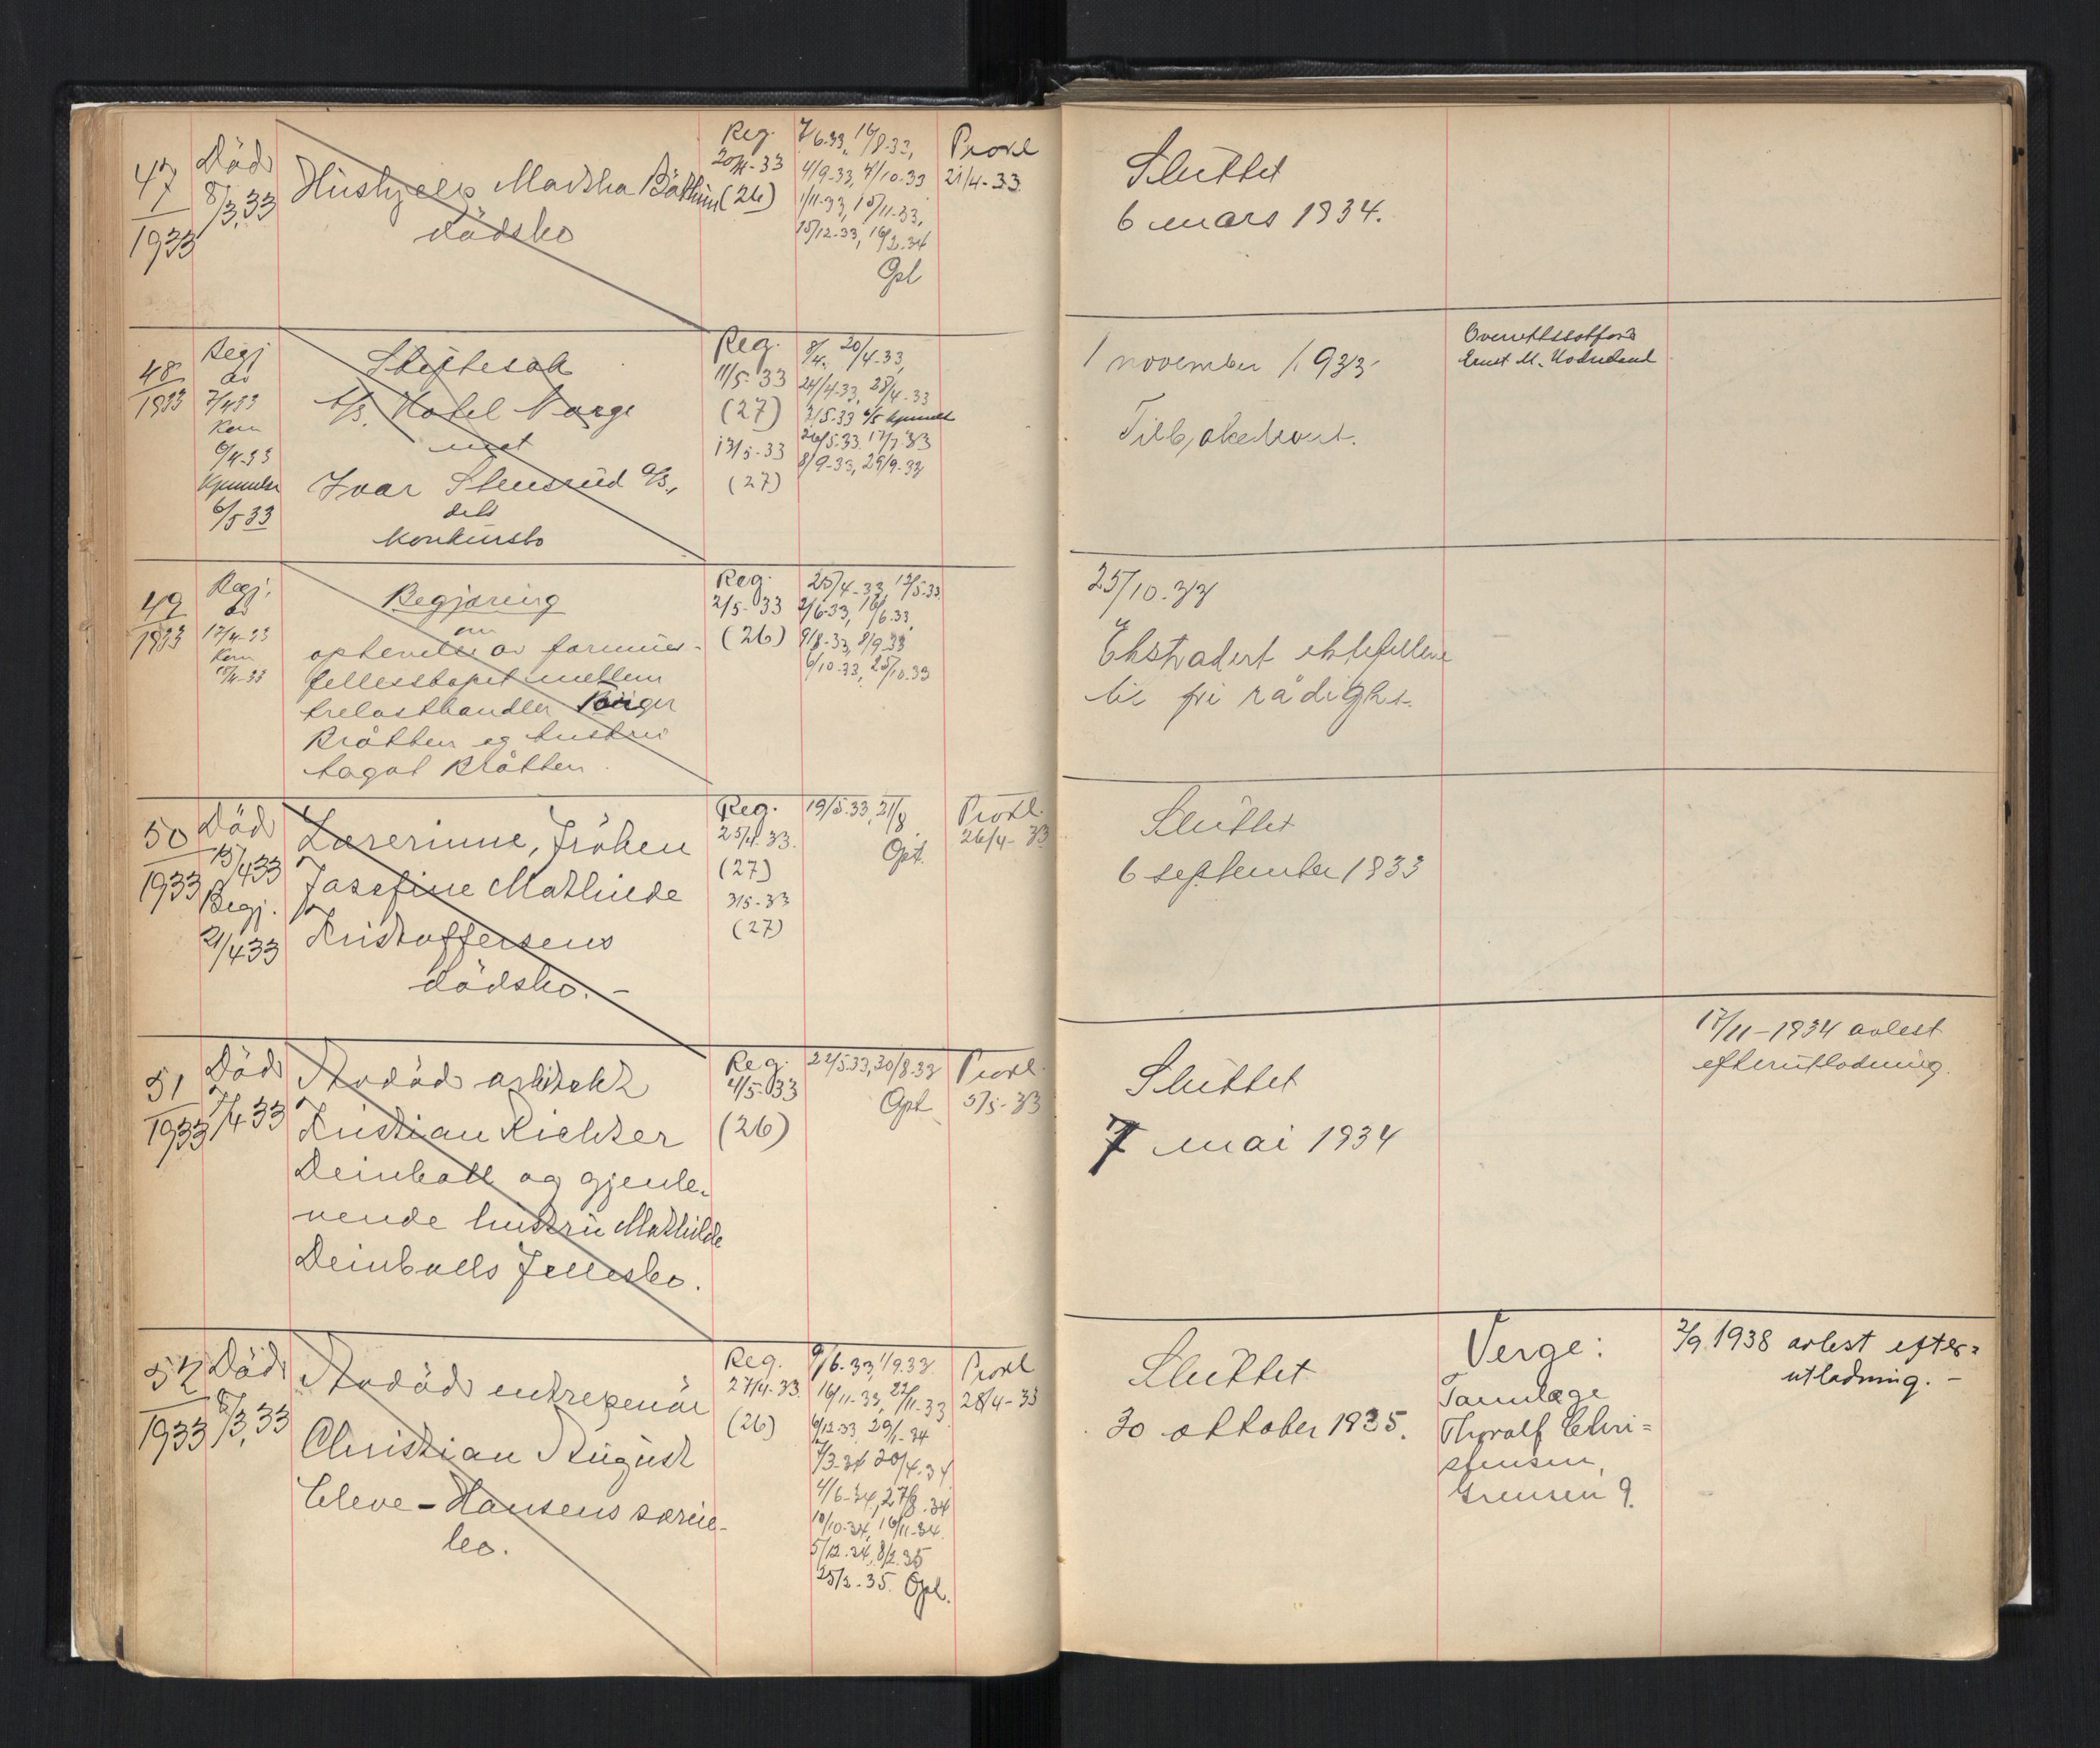 47
1933
Död
8/3.33
Hushjelp Martha
dödsbo
Reg.
20/4-33
(26)
7/6.33, 16/8-33,
4/9-33, 4/10-33
1/11-33, 15/11-33,
15/12-33, 16/2-34
Opl
Prokl
21/4-33
Sluttet
6 mars 1934.
48
1933
Begj
av
7/4 33
Kom
8/4-33
Kjennelse
6/5 33
Skiftesak
A/S. Hotel Norge
mot
Ivar Stensrud A/S,
dets
konkursbo
Reg.
11/5-33
(27)
13/5-33
(27)
8/4. 20/4-33,
24/4-33, 28/4-33
8/9-33, 29/9-33
1 november 1933
Ernst M.
49
1933
Begj.
av
12/4-33
Kom
18/4-33
Begjæring
om
ophevelse av formues-
fellesskapet mellem
trelasthandler Birger
Bråthen og hustru
Dagot Bråthen
Reg.
2/5-33
(26)
25/4-33, 12/5-33
2/6-33, 16/6-33,
9/8-33, 8/9-33
6/10-33, 25/10-33
25/10-33
Ekstradert ektefellene
til fri rådighet.
50
1933
Död
13/4 33
Begj.
21/4 33
Lærerinne, Fröken
Josefine Mathilde
Kristoffersens
dödsbo. -
Reg.
25/4-33.
(27)
3/5-33
(27)
19/5.33, 21/8
Opt.
Prokl.
26/4-33
Sluttet
6 september 1933
51
1933
Död
7/4 33
Avdöd arkitekt
Kristian Richter
Deinboll og gjenle-
vende hustru Mathilde
Deinbolls Fellesbo.
Reg.
4/5-33
(26)
22/5.33, 30/8-33
Opt
Prokl.
5/5-33
Sluttet
7 mai 1934
17/11-1934 avlest
efterutlodning.
52
1933
Död
8/3.33
Avdöd entrepenör
Christian August
Cleve-Hansens særie-
bo.
Reg.
27/4-33
(26)
9/6-33, 1/9.33
16/11-33, 22/11-33
6/12-33, 29/1-34
7/3-34 20/4-34
4/6-34, 27/8-34
10/10-34, 16/11-34
5/12-34, 8/2.35
25/2-35. Opl.
Prokl
28/4-33
Sluttet
30 oktober 1935.
Verge:
Tannlæge
Thoralf Chri=
stensen,
Grensen 9.
2/9 1938 avlest efter=
utlodning. -